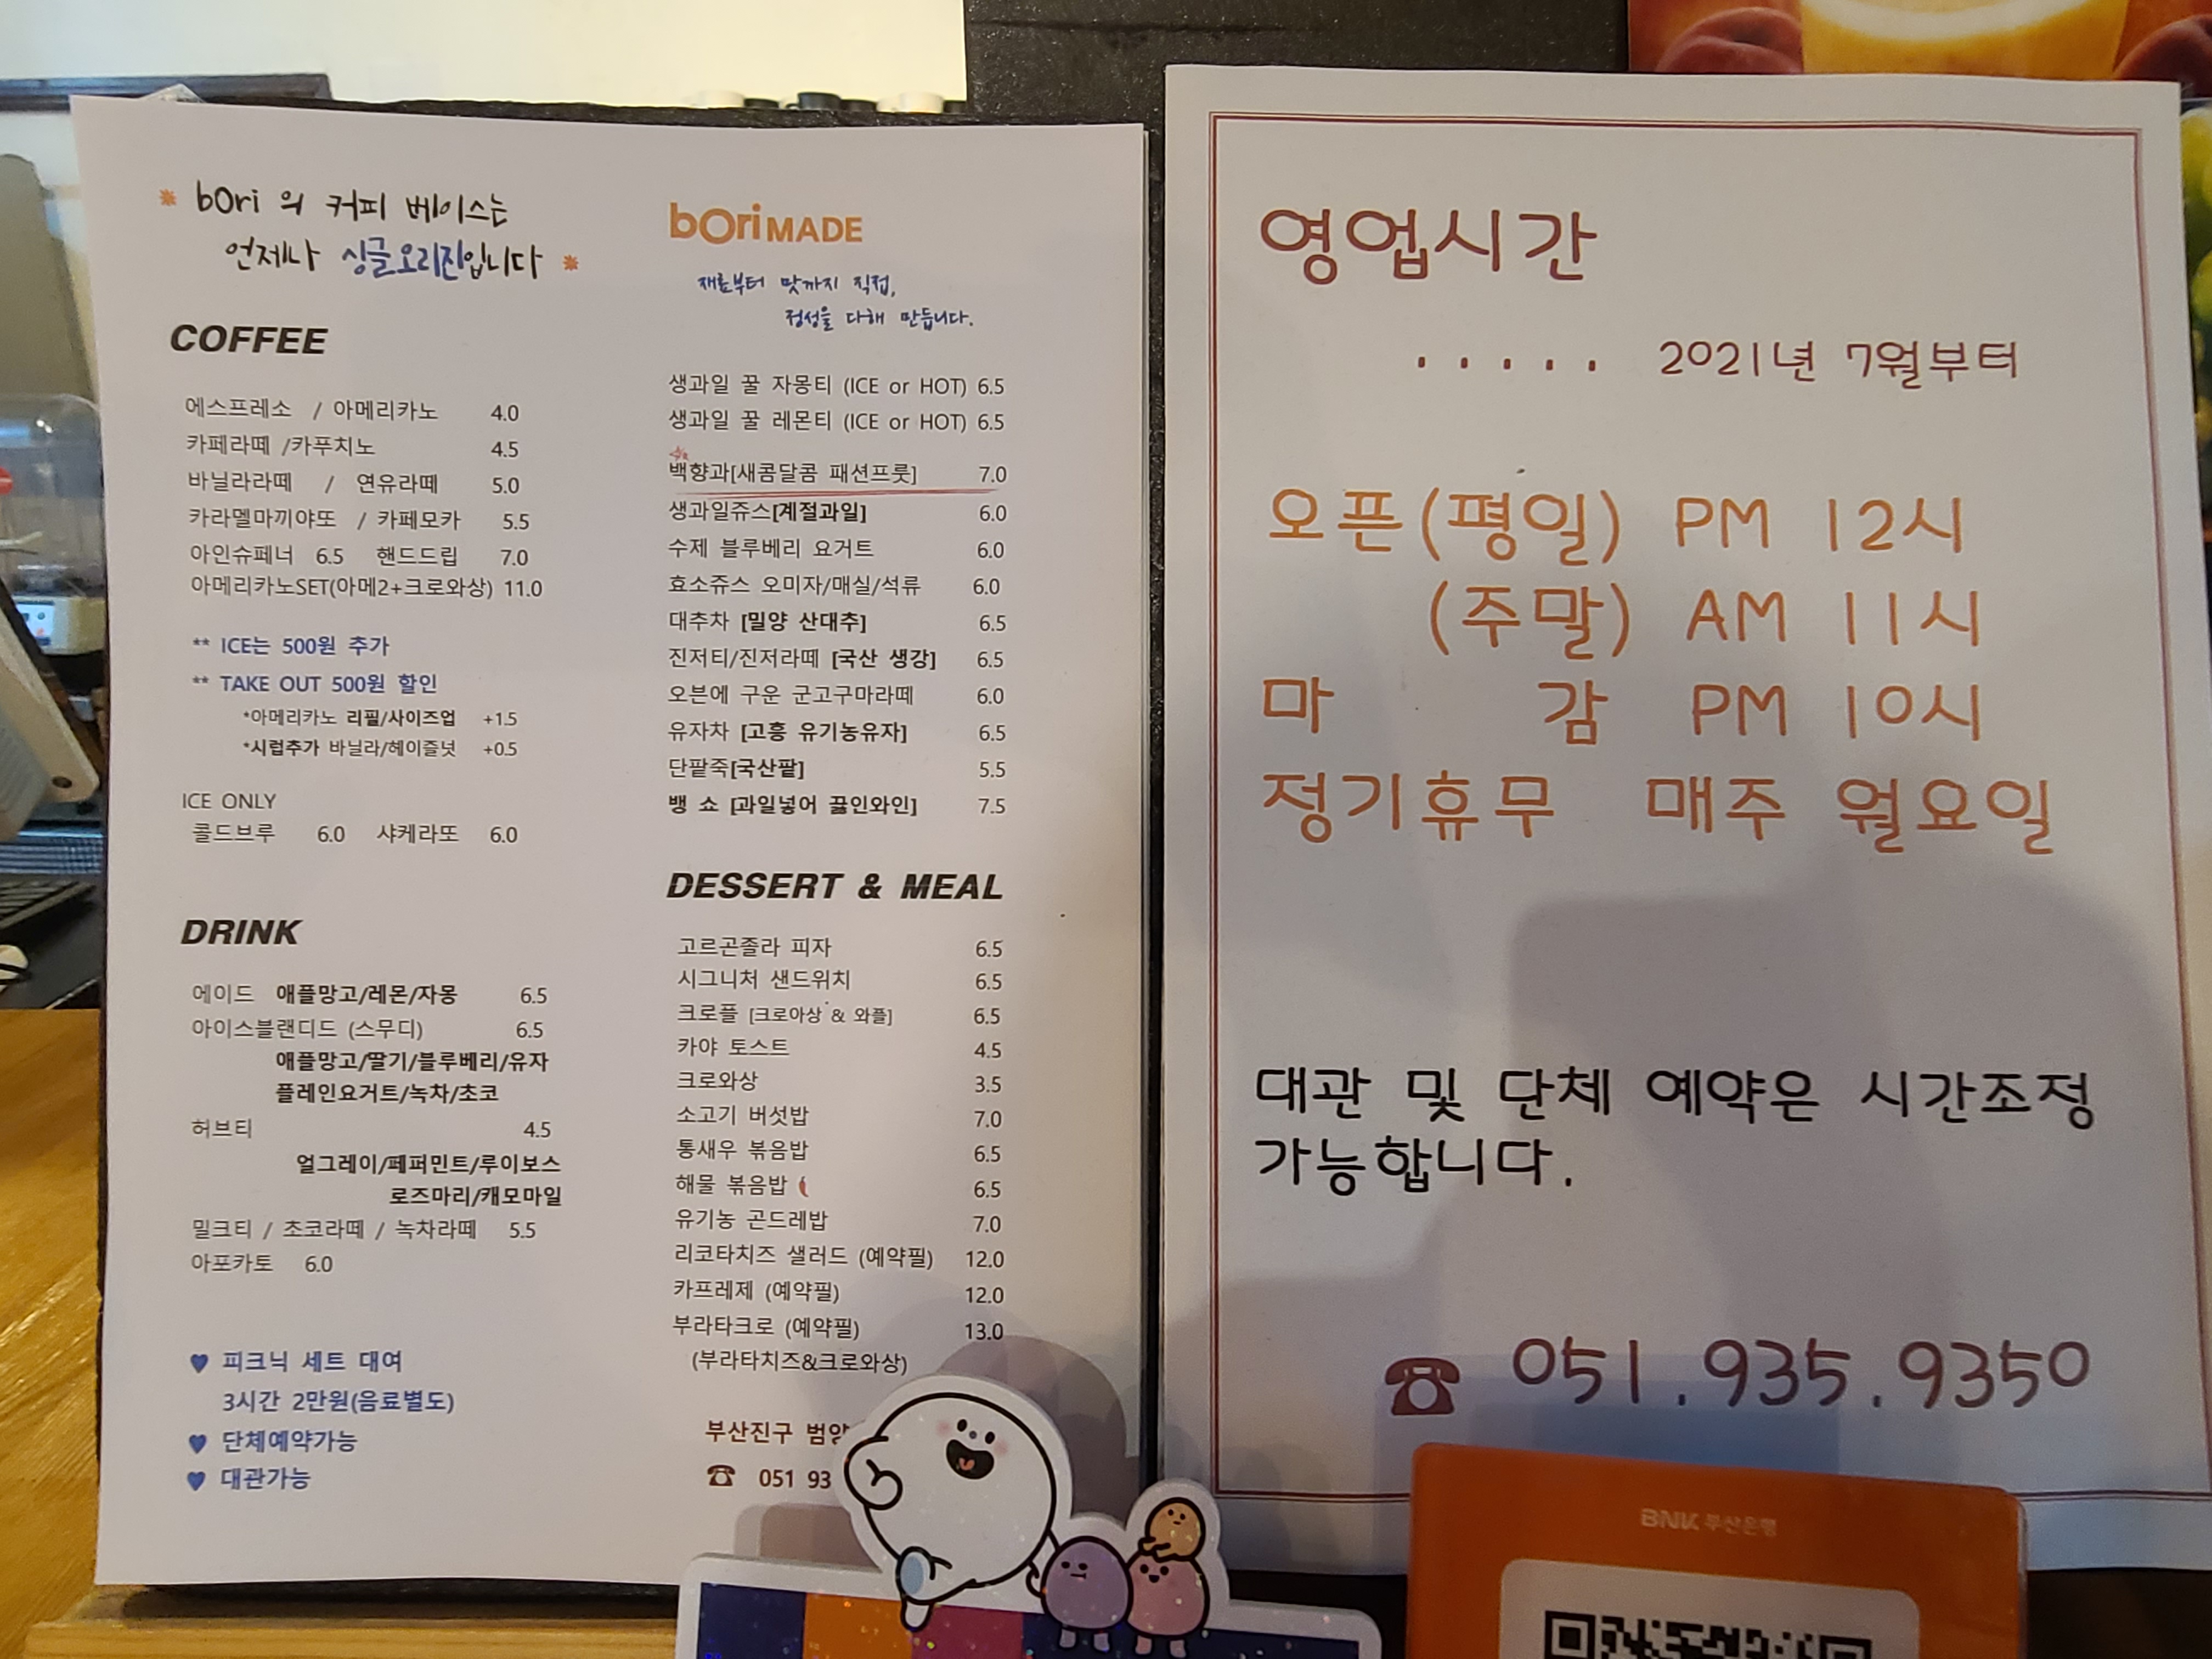 * bOri 의 커피 베이스는
언제나 싱글오리진입니다 *
COFFEE
에스프레소 / 아메리카노 4.0
카페라떼 /카푸치노 4.5
바닐라라떼 / 연유라떼 5.0
카라멜마끼야또 / 카페모카 5.5
아인슈페너 6.5 핸드드립 7.0
아메리카노SET(아메2+크로와상) 11.0
** ICE는 500원 추가
** TAKE OUT 500원 할인
*아메리카노 리필/사이즈업 +1.5
*시럽추가 바닐라/헤이즐넛 +0.5
ICE ONLY
콜드브루 6.0 샤케라또 6.0
DRINK
에이드 애플망고/레몬/자몽 6.5
아이스블랜디드 (스무디) 6.5
애플망고/딸기/블루베리/유자
플레인요거트/녹차/초코
허브티 4.5
얼그레이/페퍼민트/루이보스
로즈마리/캐모마일
밀크티 / 초코라떼 / 녹차라떼 5.5
아포카토 6.0
♥ 피크닉 세트 대여
3시간 2만원(음료별도)
♥ 단체예약가능
♥ 대관가능
bOri MADE
재료부터 맛까지 직접,
정성을 다해 만듭니다.
생과일 꿀 자몽티 (ICE or HOT) 6.5
생과일 꿀 레몬티 (ICE or HOT) 6.5
백향과[새콤달콤 패션프룻] 7.0
생과일쥬스[계절과일] 6.0
수제 블루베리 요거트 6.0
효소쥬스 오미자/매실/석류 6.0
대추차 [밀양 산대추] 6.5
진저티/진저라떼 [국산 생강] 6.5
오븐에 구운 군고구마라떼 6.0
유자차 [고흥 유기농유자] 6.5
단팥죽[국산팥] 5.5
뱅 쇼 [과일넣어 끓인와인] 7.5
DESSERT & MEAL
고르곤졸라 피자 6.5
시그니처 샌드위치 6.5
크로플 [크로아상 & 와플] 6.5
카야 토스트 4.5
크로와상 3.5
소고기 버섯밥 7.0
통새우 볶음밥 6.5
해물 볶음밥 6.5
유기농 곤드레밥 7.0
리코타치즈 샐러드 (예약필) 12.0
카프레제 (예약필) 12.0
부라타크로 (예약필) 13.0
(부라타치즈&크로와상)
부산진구 범양
☎ 051 93
영업시간
..... 2021년 7월부터
오픈(평일) PM 12시
(주말) AM 11시
마 감 PM 10시
정기휴무 매주 월요일
대관 및 단체 예약은 시간조정
가능합니다.
☎ 051.935.9350
BNK 부산은행